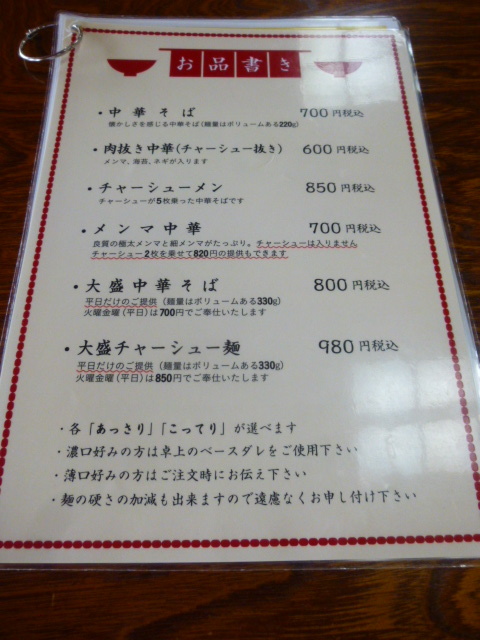 お品書き
・中華そば 700円税込
懐かしさを感じる中華そば(麺量はボリュームある220g)
・肉抜き中華(チャーシュー抜き) 600円税込
メンマ、海苔、ネギが入ります
・チャーシューメン 850円税込
チャーシューが5枚乗った中華そばです
・メンマ中華 700円税込
良質の極太メンマと細メンマがたっぷり。チャーシューは入りません
チャーシュー2枚を乗せて820円の提供もできます
・大盛中華そば 800円税込
平日だけのご提供(麺量はボリュームある330g)
火曜金曜(平日)は700円でご奉仕いたします
・大盛チャーシュー麺 980円税込
平日だけのご提供(麺量はボリュームある330g)
火曜金曜(平日)は850円でご奉仕いたします
・各「あっさり」「こってり」が選べます
・濃口好みの方は卓上のベースダレをご使用下さい
・薄口好みの方はご注文時にお伝え下さい
・麺の硬さの加減も出来ますので遠慮なくお申し付け下さい